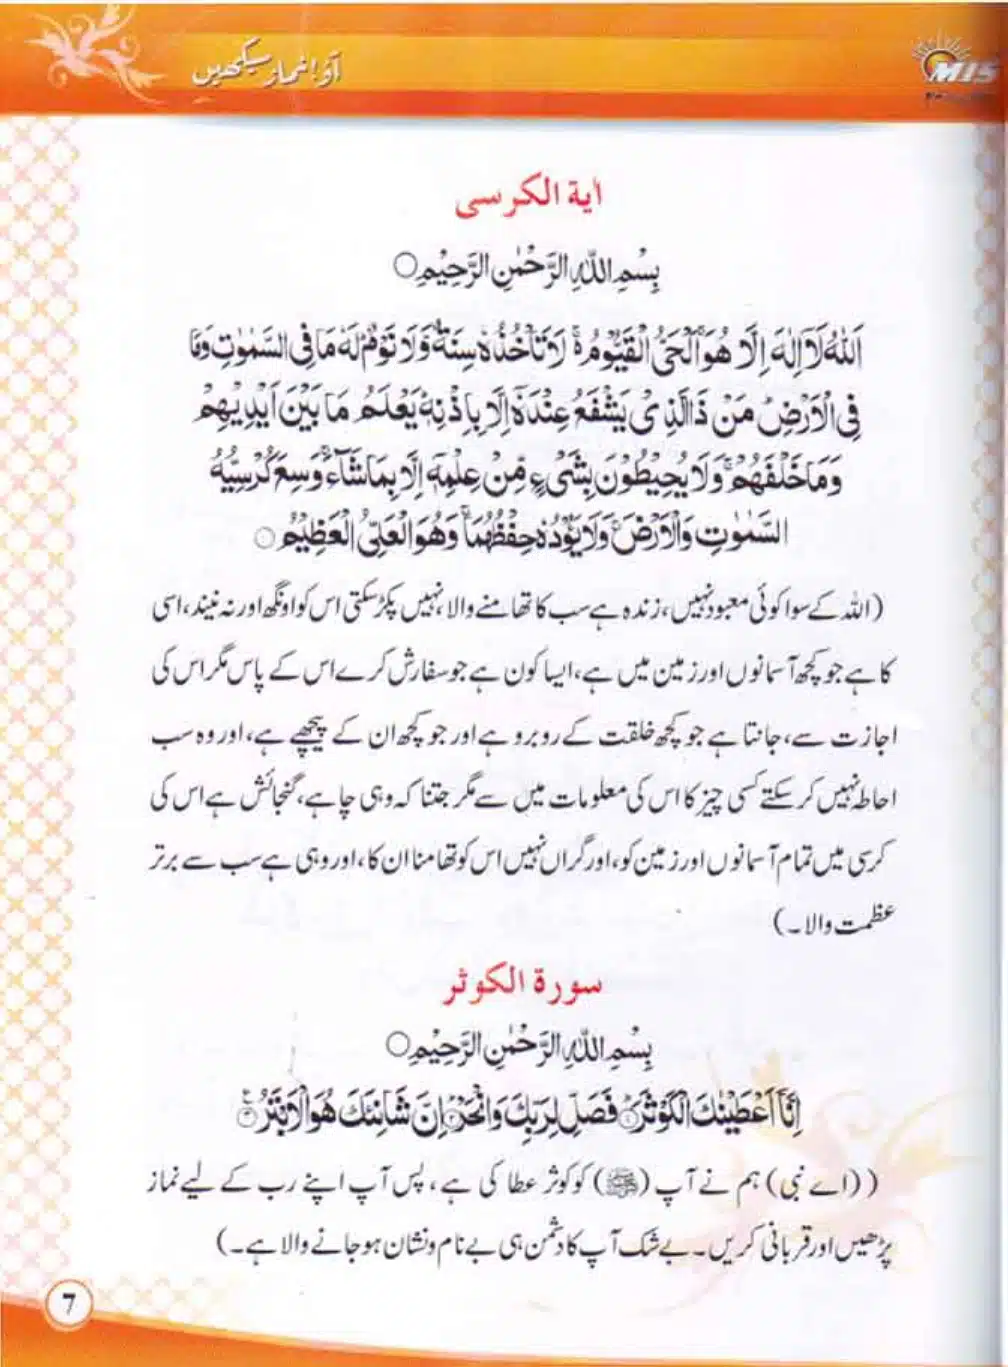 آؤ! نماز سیکھیں
MIS
اٰیة الکرسی
بِسْمِ اللّٰهِ الرَّحْمٰنِ الرَّحِیْمِ○
اَللّٰهُ لَاۤ اِلٰهَ اِلَّا هُوَۚ اَلْحَیُّ الْقَیُّوْمُ ۚ لَا تَاْخُذُهٗ سِنَةٌ وَّلَا نَوْمٌ ؕ لَهٗ مَا فِی السَّمٰوٰتِ وَمَا
فِی الْاَرْضِ ؕ مَنْ ذَا الَّذِیْ یَشْفَعُ عِنْدَهٗۤ اِلَّا بِاِذْنِهٖ ؕ یَعْلَمُ مَا بَیْنَ اَیْدِیْهِمْ
وَمَا خَلْفَهُمْ ۚ وَلَا یُحِیْطُوْنَ بِشَیْءٍ مِّنْ عِلْمِهٖۤ اِلَّا بِمَا شَآءَ ۚ وَسِعَ كُرْسِیُّهُ
السَّمٰوٰتِ وَالْاَرْضَ ۚ وَلَا یَـُٔوْدُهٗ حِفْظُهُمَا ۚ وَهُوَ الْعَلِیُّ الْعَظِیْمُ ○
(اللہ کے سوا کوئی معبود نہیں، زندہ ہے سب کا تھامنے والا، نہیں پکڑ سکتی اس کو اونگھ اور نہ نیند، اسی
کا ہے جو کچھ آسمانوں اور زمین میں ہے، ایسا کون ہے جو سفارش کرے اس کے پاس مگر اس کی
اجازت سے، جانتا ہے جو کچھ خلقت کے روبرو ہے اور جو کچھ ان کے پیچھے ہے، اور وہ سب
احاطہ نہیں کر سکتے کسی چیز کا اس کی معلومات میں سے مگر جتنا کہ وہی چاہے، گنجائش ہے اس کی
کرسی میں تمام آسمانوں اور زمین کو، اور گراں نہیں اس کو تھامنا ان کا، اور وہی ہے سب سے برتر
عظمت والا۔)
سورة الکوثر
بِسْمِ اللّٰهِ الرَّحْمٰنِ الرَّحِیْمِ○
اِنَّاۤ اَعْطَیْنٰكَ الْكَوْثَرَ ۝۱ فَصَلِّ لِرَبِّكَ وَانْحَرْ ۝۲ اِنَّ شَانِئَكَ هُوَ الْاَبْتَرُ ۝۳
((اے نبی) ہم نے آپ (ﷺ) کو کوثر عطا کی ہے، پس آپ اپنے رب کے لیے نماز
پڑھیں اور قربانی کریں۔ بے شک آپ کا دشمن ہی بے نام و نشان ہو جانے والا ہے۔)
7